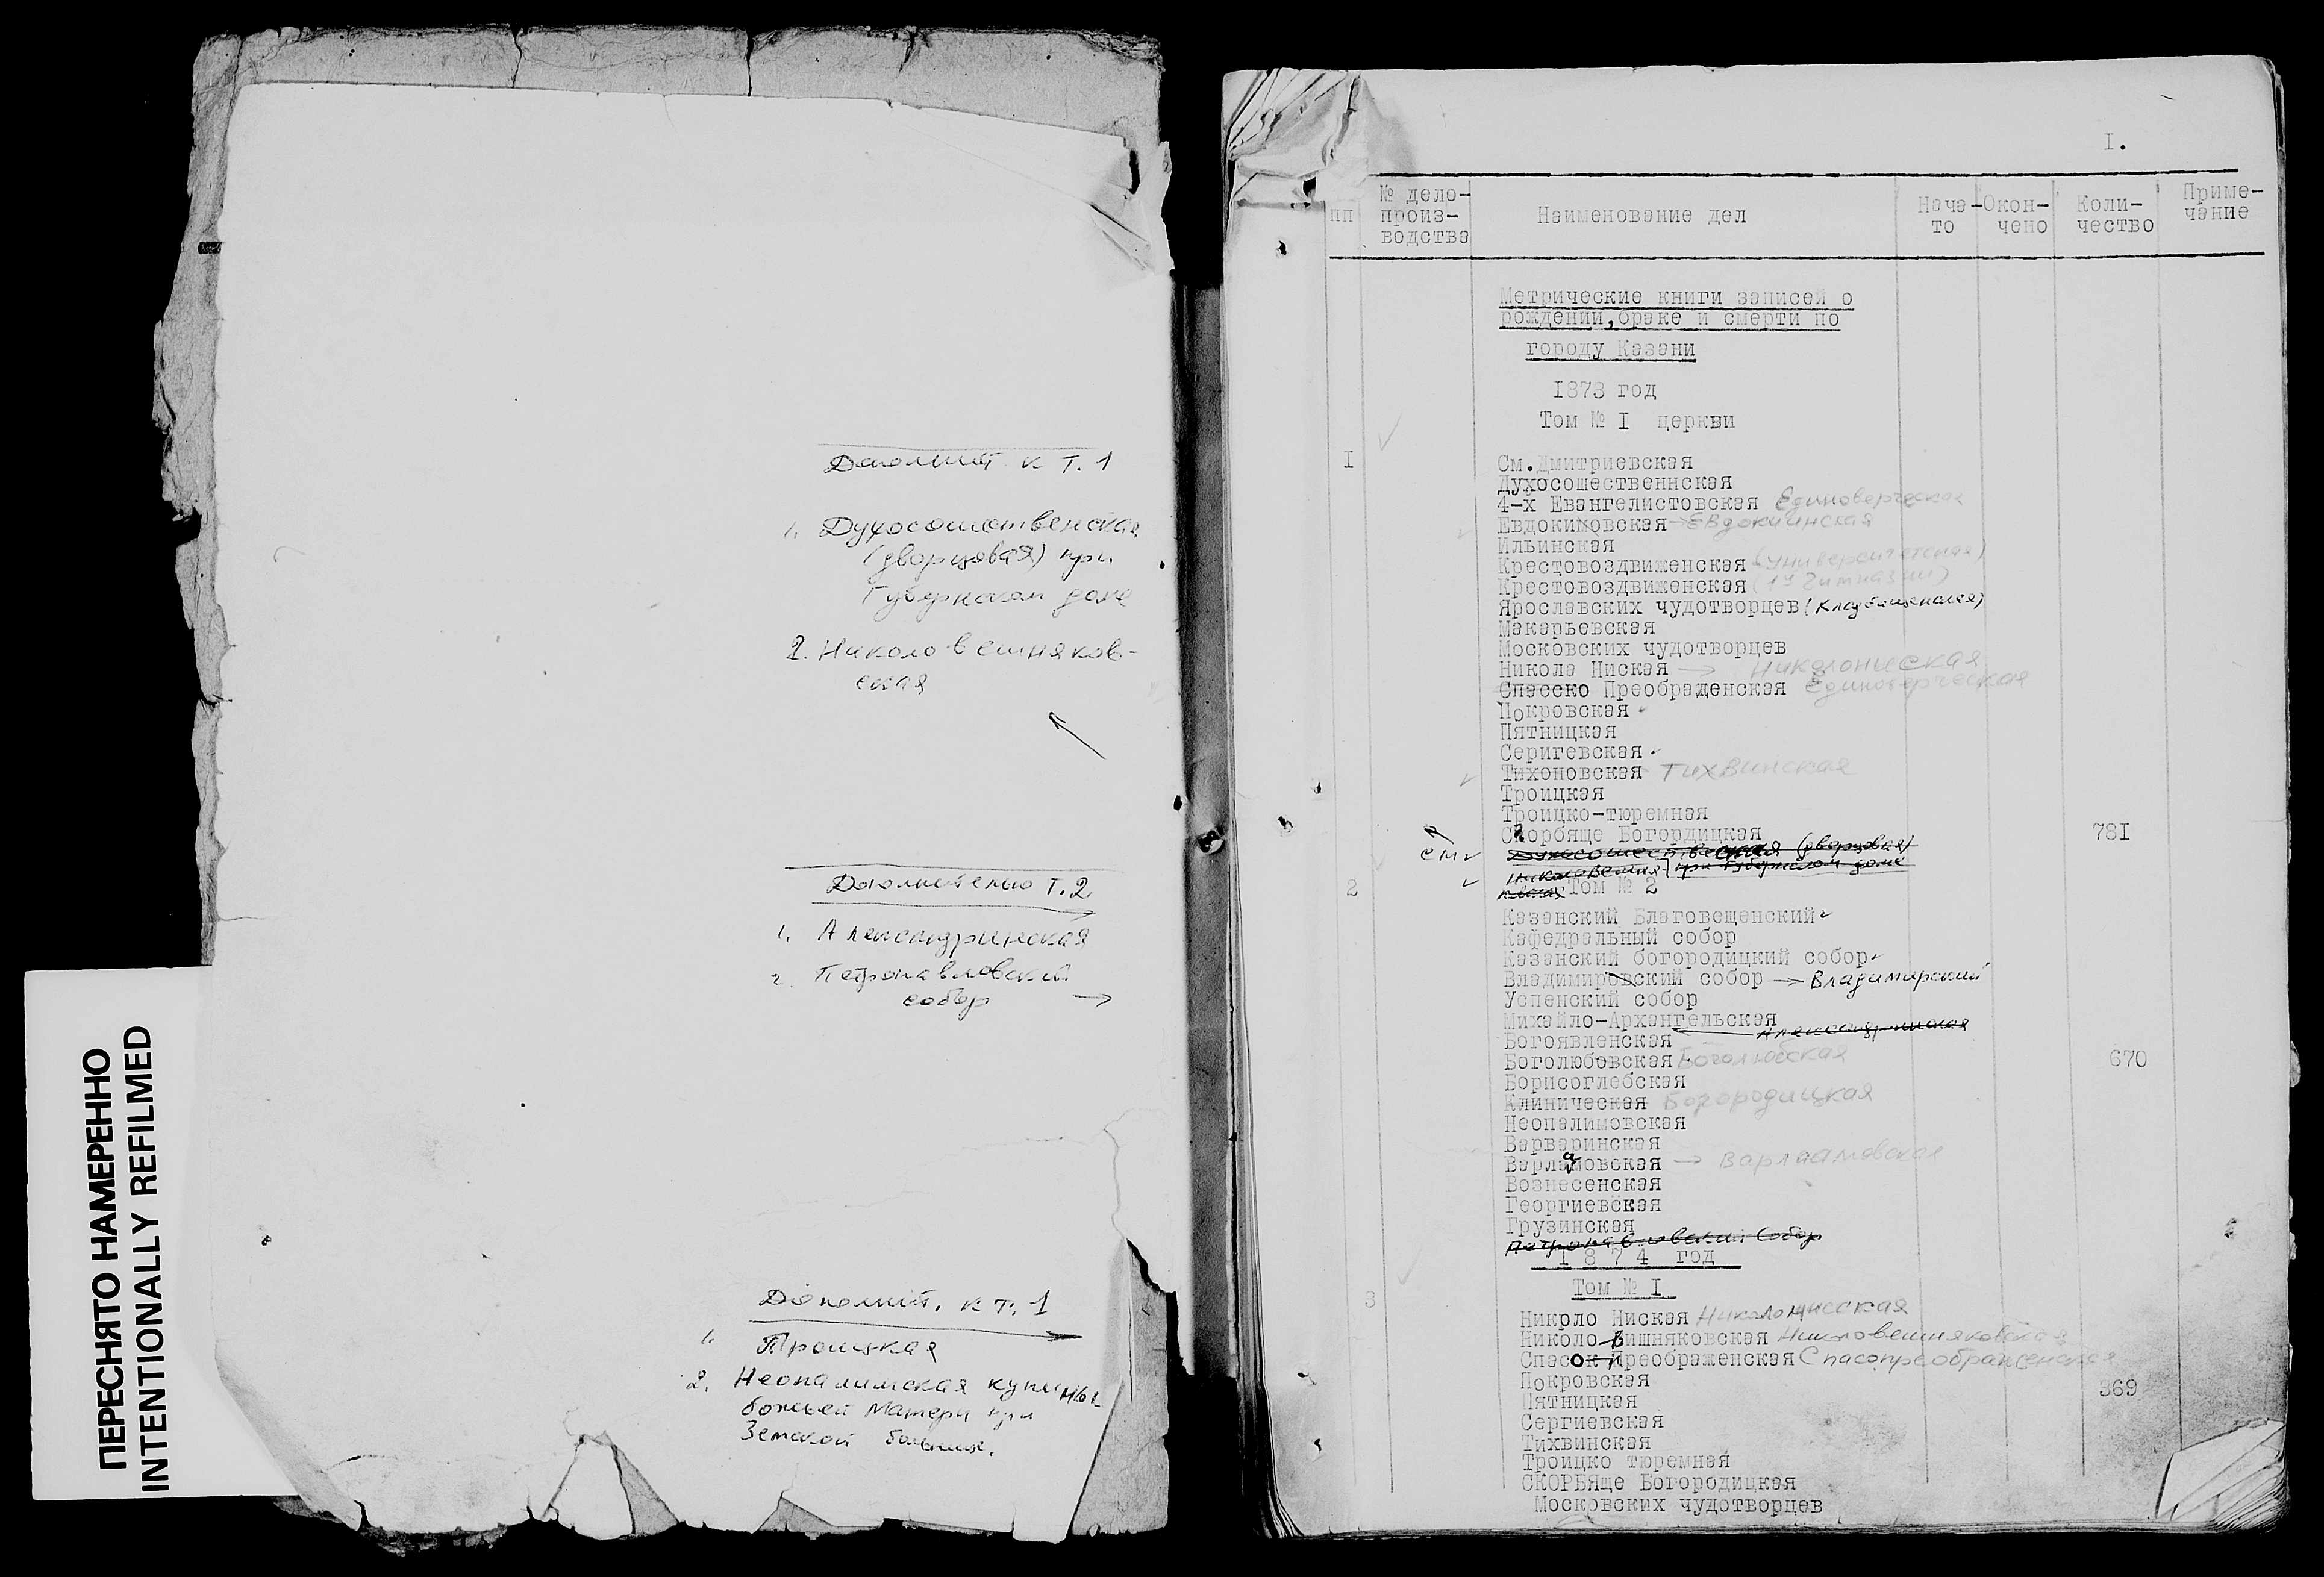 Дополнит. к т. 1
1. Духосошественская
(дворцовая) при
Губернском доме
2. Николо вешняков-
ская
Дополнительно Т.2
1. Александринская
2. Петропавловский
собор →
Дополнит. к т. 1
1. Троицкая
2. Неопалимская купины
божьей Матери при
Земской больнице.
ПЕРЕСНЯТО НАМЕРЕННО
INTENTIONALLY REFILMED
I.
пп
№ дело-
произ-
водства
Наименование дел
Нача-
то
Окон-
чено
Коли-
чество
Приме-
чание
Метрические книги записей о
рождении, браке и смерти по
городу Казани
1873 год
Том № I церкви
I
См.Дмитриевская
Духосошественнская
4-х Евангелистовская Единоверческая
Евдокимовская → Евдокиинская
Ильинская
Крестовоздвиженская (университетская)
Крестовоздвиженская (1й гимназии)
Ярославских чудотворцев (Кладбищенская)
Макарьевская
Московских чудотворцев
Никола Ниская → Николониская
Спасско Преобраденская Единоверческая
Покровская
Пятницкая
Серигевская
Тихоновская Тихвинская
Троицкая
Троицко-тюремная
Скорбяще Богордицкая 781
см Духосошественская (дворцовая)
при Губернском доме
2 Том № 2
Казанский Благовещенский
Кафедральный собор
Казанский богородицкий собор
Владимировский собор → Владимирский
Успенский собор
Михайло-Архангельская
Александринская
Богоявленская
Боголюбовская Боголюбская 670
Борисоглебская
Клиническая Богородицкая
Неопалимовская
Варваринская
Варламовская → Варлаамовская
а
Вознесенская
Георгиевская
Грузинская
Петропавловский Собор
1874 год
Том № I
3
Никрло Ниская Николониская
Николо вишняковская Николовешняковская
Спасок Преображенская Спасопреображенская
Покровская 369
Пятницкая
Сергиевская
Тихвинская
Троицко тюремная
СКОРБЯще Богородицкая
Московских чудотворцев